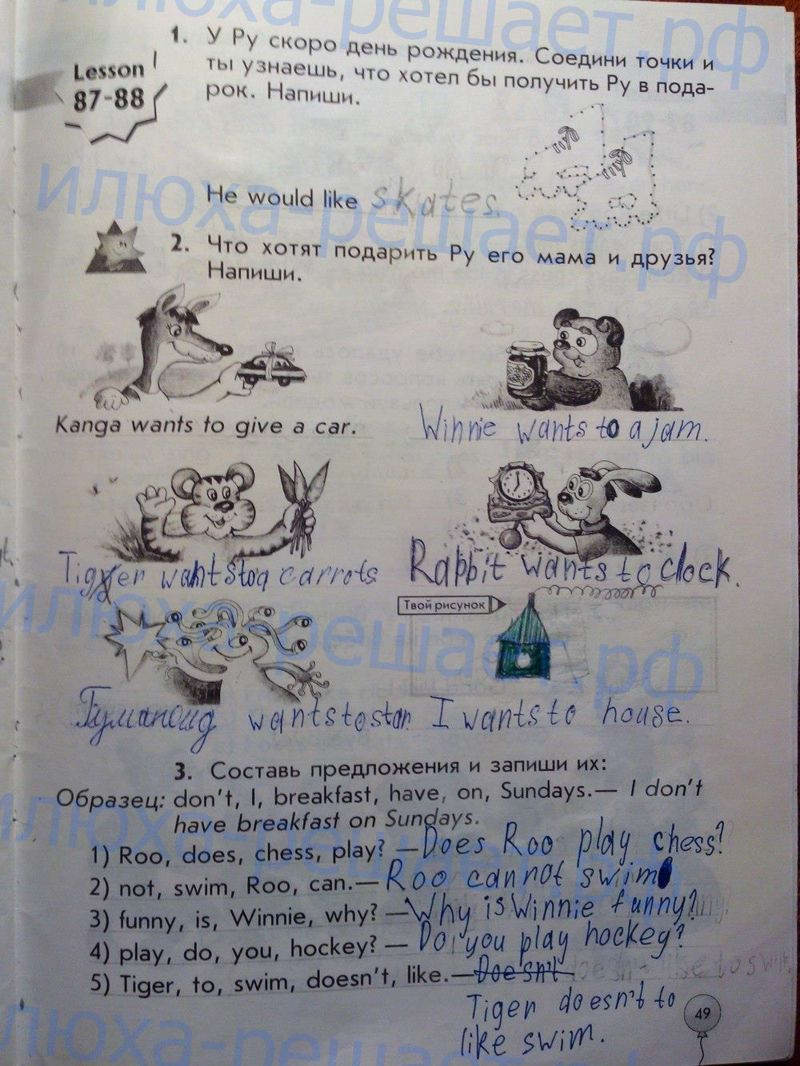 илюха-решает.рф
Lesson
87-88
1. У Ру скоро день рождения. Соедини точки и
ты узнаешь, что хотел бы получить Ру в пода-
рок. Напиши.
илюха-решает.рф
He would like skates.
2. Что хотят подарить Ру его мама и друзья?
Напиши.
Kanga wants to give a car.
Winnie wants to a jam.
Tigger wants to a carrots
Rabbit wants to clock.
илюха-решает.рф
Твой рисунок
Гуманоид wants to star.
I wants to house.
3. Составь предложения и запиши их:
Образец: don't, I, breakfast, have, on, Sundays.— I don't
have breakfast on Sundays.
илюха-решает.рф
1) Roo, does, chess, play? — Does Roo play chess?
2) not, swim, Roo, can.— Roo cannot swim
3) funny, is, Winnie, why? — Why is Winnie funny?
4) play, do, you, hockey? — Do you play hockey?
5) Tiger, to, swim, doesn't, like.— Doesn't
Tiger doesn't to
like swim.
49
илюха-решает.рф